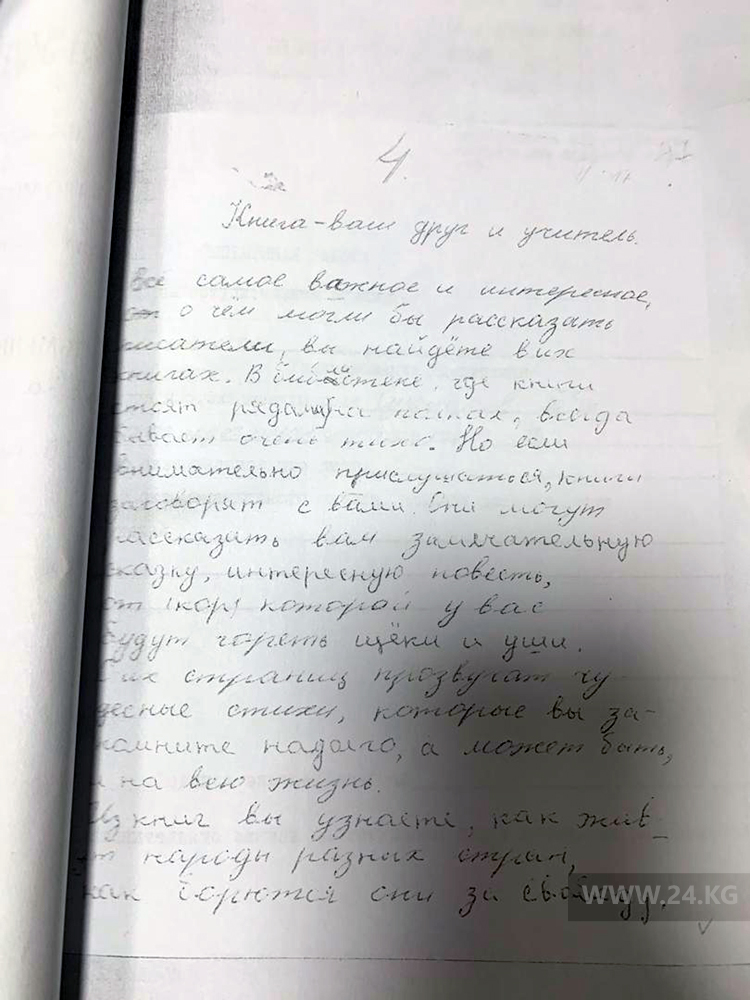 4.
Книга-ваш друг и учитель.
все самое важное и интересное,
о чём могли бы рассказать
писатели, вы найдёте в их
книгах. В библиотеке, где книги
стоят рядами на полках, всегда
бывает очень тихо. Но если
внимательно прислушаться, книги
заговорят с вами. Они могут
рассказать вам замечательную
сказку, интересную повесть,
от (кор) которой у вас
будут гореть щёки и уши.
С их страниц прозвучат чу
десные стихи, которые вы за-
помните надолго, а может быть,
и на всю жизнь.
Из книг вы узнаете, как жив_
ут народы разных стран,
как борются они за свою
WWW.24.KG